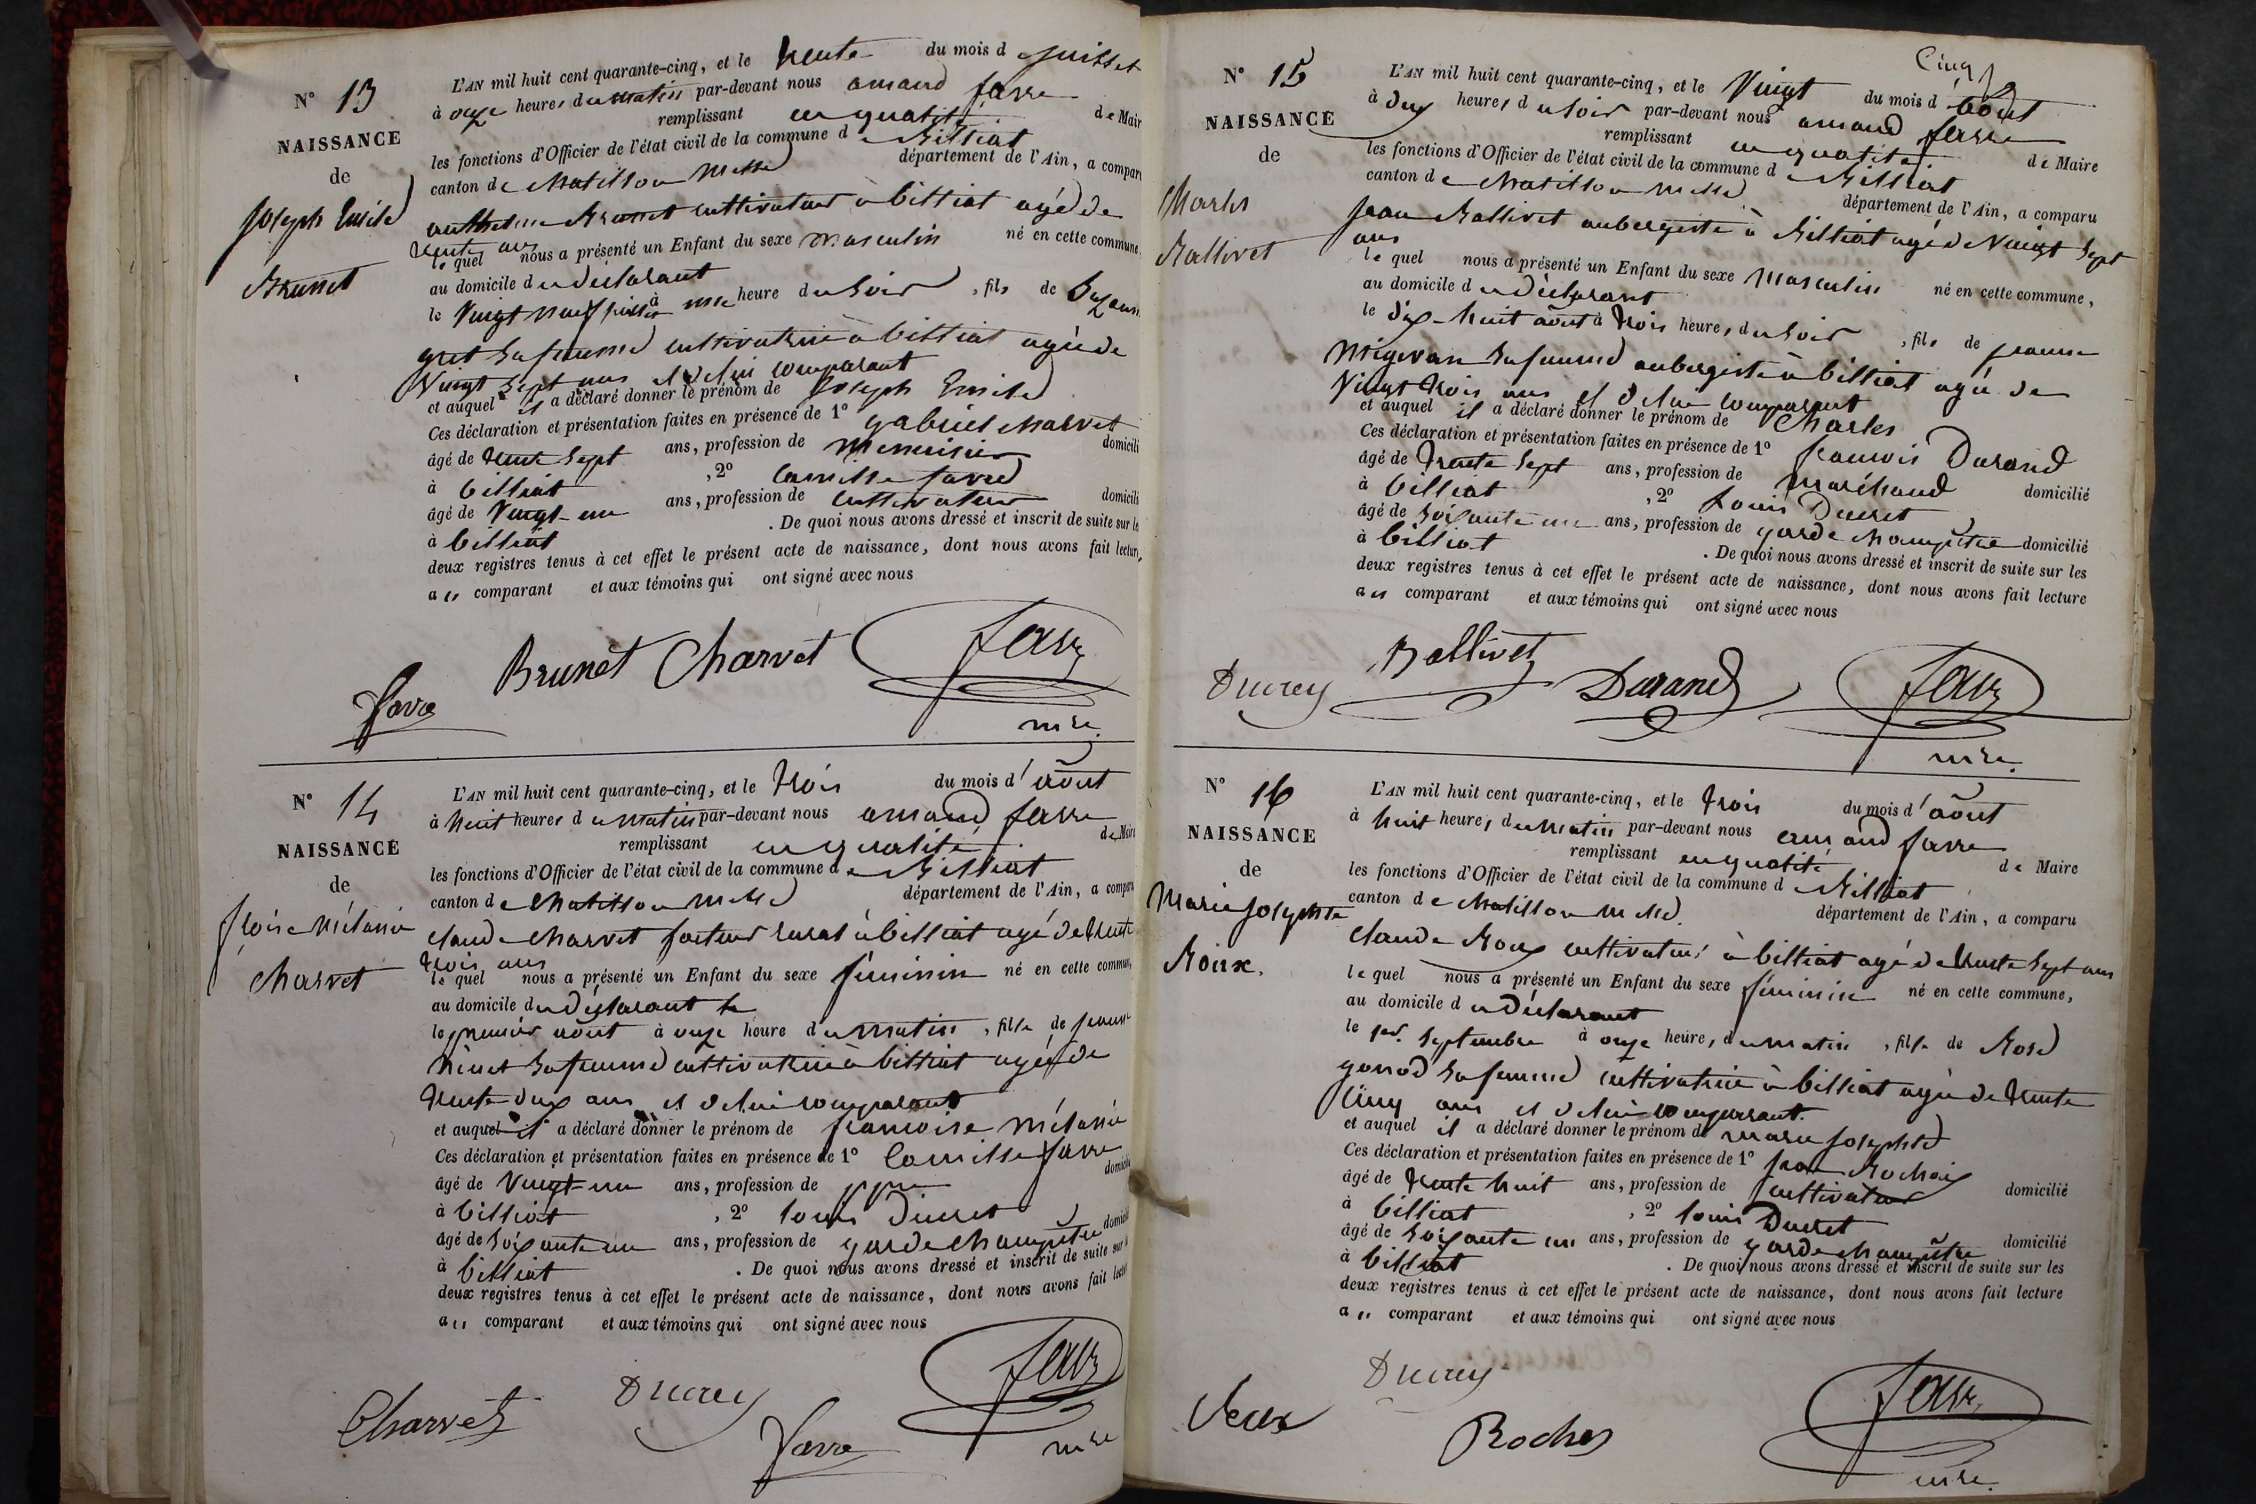 N° 13
NAISSANCE
de
Joseph Emile
Brunet
L'AN mil huit cent quarante-cinq, et le trente du mois de juillet
à onze heures du matin par-devant nous amand favre
remplissant en qualité de Mair
les fonctions d'Officier de l'état civil de la commune de Billiat
canton de Chatillon Mlle département de l'Ain, a compar
anthelme Brunet cultivateur à billiat agé de
trente ans
lequel nous a présenté un Enfant du sexe masculin né en cette commune
au domicile du déclarant
le Vingt neuf juillet à une heure du soir, fils de Suzanne
gret sa femme cultivatrice à billiat agée de
Vingt sept ans et de lui comparant
et auquel il a déclaré donner le prénom de Joseph Emile
Ces déclaration et présentation faites en présence de 1° gabriel charvet
âgé de trente sept ans, profession de menuisier domicili
à billiat , 2° camille favre
âgé de Vingt-un ans, profession de cultivateur domicili
à billiat . De quoi nous avons dressé et inscrit de suite sur le
deux registres tenus à cet effet le présent acte de naissance, dont nous avons fait lecture,
au comparant et aux témoins qui ont signé avec nous
Brunet Charvet favre
favre mre
N° 14
NAISSANCE
de
fçoise Mélanie
Charvet
L'AN mil huit cent quarante-cinq, et le trois du mois d'août
à huit heures du matin par-devant nous amand favre
remplissant en qualité de Mair
les fonctions d'Officier de l'état civil de la commune de Billiat
canton de Chatillon Mlle département de l'Ain, a compar
claude charvet facteur rural à billiat agé de trente
trois ans
lequel nous a présenté un Enfant du sexe féminin né en cette commun
au domicile du déclarant le
le premier août à onze heure du matin, fille de jeanne
sa femme cultivatrice à billiat agée de
trente deux ans et de lui comparant
et auquel il a déclaré donner le prénom de francoise Mélanie
Ces déclaration et présentation faites en présence de 1° Camille favre
âgé de Vingt-un ans, profession de domicilié
à billiat , 2° louis Ducret
âgé de soixante un ans, profession de garde champêtre domicil
à billiat . De quoi nous avons dressé et inscrit de suite sur l
deux registres tenus à cet effet le présent acte de naissance, dont nous avons fait lectu
au comparant et aux témoins qui ont signé avec nous
Charvet Ducrey favre favre
mre
Cinq
N° 15
NAISSANCE
de
Charles
Ballivet
L'AN mil huit cent quarante-cinq, et le Vingt du mois d'août
à dix heures du soir par-devant nous amand favre
remplissant en qualité de Maire
les fonctions d'Officier de l'état civil de la commune de Billiat
canton de Chatillon Mlle département de l'Ain, a comparu
Jean Ballivet aubergiste à Billiat agé de Vingt Sept
ans
lequel nous a présenté un Enfant du sexe Masculin né en cette commune,
au domicile du déclarant
le dix-huit août à trois heures du soir, fils de jeanne
sa femme aubergiste à billiat agée de
Vingt trois ans et de lui comparant
et auquel il a déclaré donner le prénom de Charles
Ces déclaration et présentation faites en présence de 1° francois Durand
âgé de trente sept ans, profession de maréchaud domicilié
à billiat , 2° Louis Ducret
âgé de soixante un ans, profession de garde champêtre domicilié
à billiat . De quoi nous avons dressé et inscrit de suite sur les
deux registres tenus à cet effet le présent acte de naissance, dont nous avons fait lecture
au comparant et aux témoins qui ont signé avec nous
Ducrey Ballivet Durand favre
mre
N° 16
NAISSANCE
de
Marie Josephte
Roux.
L'AN mil huit cent quarante-cinq, et le trois du mois d'août
à huit heures du matin par-devant nous amand favre
remplissant en qualité de Maire
les fonctions d'Officier de l'état civil de la commune de Billiat
canton de Chatillon Mlle département de l'Ain, a comparu
claude Roux cultivateur à billiat agé de trente sept ans
lequel nous a présenté un Enfant du sexe féminin né en cette commune,
au domicile du déclarant
le 1er septembre à onze heures du matin, fille de Rose
gonod sa femme cultivatrice à billiat agée de trente
cinq ans et de lui comparant.
et auquel il a déclaré donner le prénom de marie josephte
Ces déclaration et présentation faites en présence de 1° jean Rochaix
âgé de trente huit ans, profession de cultivateur domicilié
à billiat , 2° louis Ducret
âgé de soixante un ans, profession de garde champêtre domicilié
à billiat . De quoi nous avons dressé et inscrit de suite sur les
deux registres tenus à cet effet le présent acte de naissance, dont nous avons fait lecture
au comparant et aux témoins qui ont signé avec nous
Ducrey favre
Roux Rochex
mre.